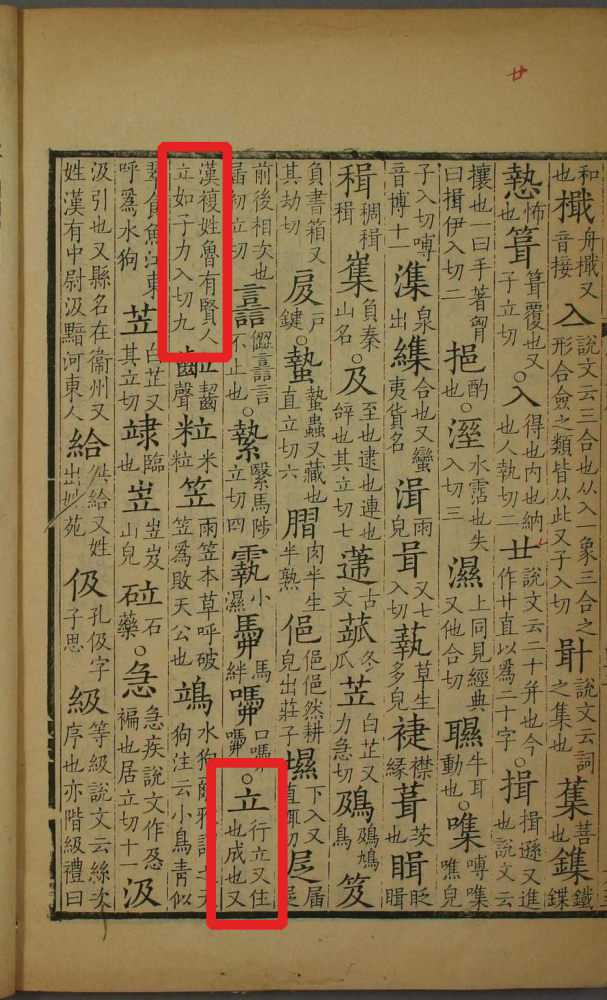 和也檝舟檝又音接亼說文云三合也从入一象三合之形合僉之類皆从此又子入切卙說文云詞之集也鏶鐵鏶
慹怖也葺覆也又子立切○入得也內也納也人執切二廿說文云二十幷也今作廿直以爲二十字○揖揖遜又進也說文云
攘也一曰手著胷曰揖伊入切二挹酌也○溼水霑也失入切三濕上同見經典又他合切牛耳動也○㗱噂㗱噍皃
子入切噂音博十一潗泉出䌖合也又蠻夷貨名湒雨皃咠又七入切蓻草生多皃襟緣葺茨也眨
稠山名及至也逮也連也辝也其立切七古文冬瓜苙白芷又力急切鳥笈
負書箱又其劫切戶鍵○蟄蟄蟲又藏也直立切六肉半生半熟俋俋俋然耕皃出莊子下入又直輒切
前後相次也初立切譶言譶言不止也○縶繫馬陟立切四小濕馽馬絆口○立行立又住也成也又
漢複姓魯有賢人立如子力入切九齧聲粒米粒笠雨笠本草呼破笠爲敗天公也鴗水狗爾雅注云小鳥青似
翠食魚江東呼爲水狗苙白芷又其立切臨也岦岦岌山皃砬石藥○急急疾說文作㤂褊也居立切十一汲
汲引也又縣名在衞州又姓漢有中尉汲黯河東人給供給又姓出姓苑伋孔伋字子思級等級說文云絲次序也亦階級禮曰
廿